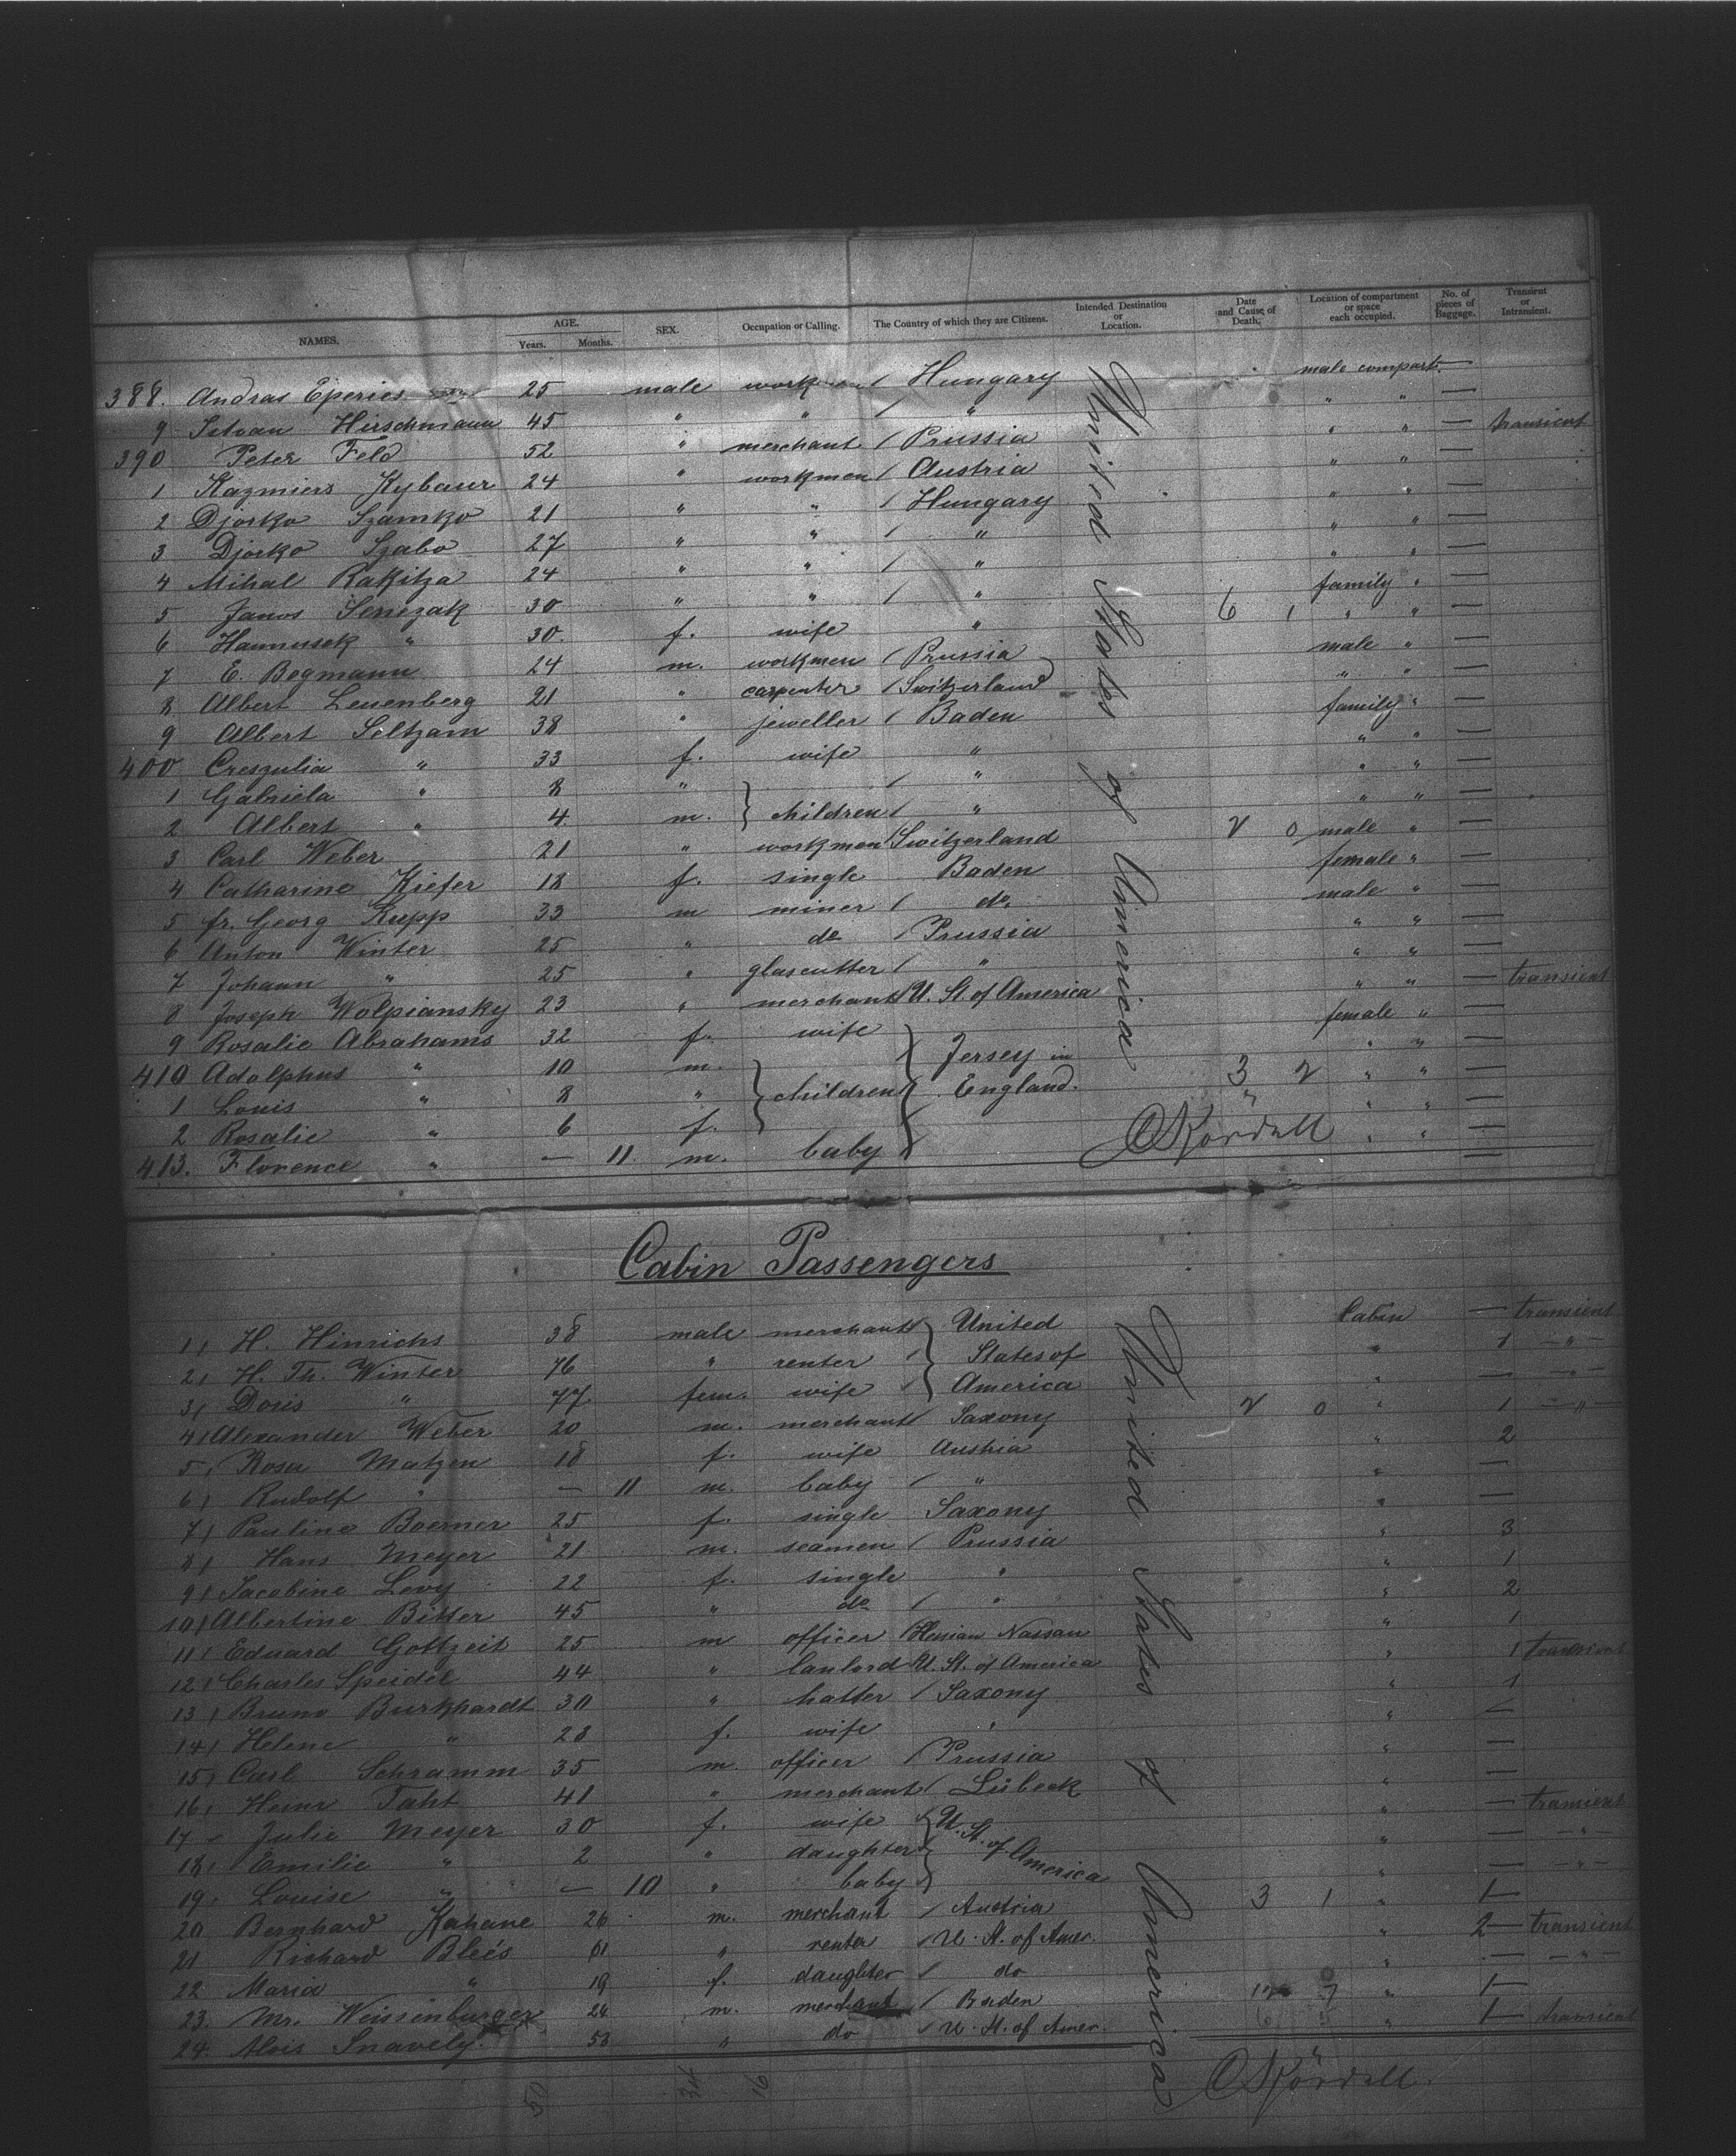 NAMES. AGE. Years. Months. SEX. Occupation or Calling. The Country of which they are Citizens. Intended Destination or Location. Date and Cause of Death. Location of compartment or space each occupied. No. of pieces of Baggage. Transient or Intransient.
388. Andras Eperies 25 male workmen / Hungary male compart. —
9 Istvan Hirschmann 45 " " / " " " —
390 Peter Feld 52 " merchant / Prussia " " — transient
1 Kazmiers Kybaur 24 " workmen / Austria " " —
2 Djorko Szamko 21 " " / Hungary " " —
3 Djorko Szabo 27 " " / " " " —
4 Mihal Rakitza 24 " " / " " " —
5 Janos 30 " " / " family " —
6 Hannusek " 30 f. wife " 6 1 " " —
7 E. Begmann 24 m. workmen / Prussia male " —
8 Albert Leuenberg 21 " carpenter / Switzerland " " —
9 Albert Seltzam 38 " jeweller / Baden family " —
400 Creszulia " 33 f. wife " " " —
1 Gabriela " 8 " / " " " —
2 Albert " 4 m. } children / " " " —
3 Carl Weber 21 " workmen / Switzerland 2 0 male " —
4 Catharine Kiefer 18 f. single Baden female " —
5 fr. Georg Rupp 33 m miner / do. male " —
6 Anton Winter 25 " do / Prussia " " —
7 Johann " 25 " glascutter / " " " —
8 Joseph Wolpiansky 23 " merchant / U. St of America " " — transient
9 Rosalie Abrahams 32 f. wife female " —
410 Adolphus " 10 m. Jersey in " " —
1 Louis " 8 " } children England. 3 2 " " —
2 Rosalie " 6 f. " " —
413. Florence " — 11 m. baby / " " —
United States of America
O Kördell
Cabin Passengers
1 / H. Hinrichs 38 male merchant / United Cabin — transient
2 / H. Th. Winter 76 " renter / States of " 1 — " —
3 / Doris " 77 fem. wife / America " — — " —
4 / Alexander Weber 20 m. merchant / Saxony 2 0 " 1 — " —
5 / Rosa Matzen 18 f. wife Austria " 2
6 / Rudolf " — 11 m. baby / " " —
7 / Pauline Boerner 25 f. single Saxony " —
8 / Hans Meyer 21 m. seamen / Prussia " 3
9 / Jacobine Levy 22 f. single " " 1
10 / Albertine Bitter 45 " do / " " 2
11 / Eduard Gottzeit 25 m officer / Hessian Nassau " 1
12 / Charles Speidel 44 " lanlord U. St. of America " 1 transient
13 / Bruno Burkhardt 30 " hatter / Saxony " 1
14 / Helene " 28 f. wife " " —
15 / Carl Schramm 35 m. officer / Prussia " —
16 / Heinr Taht 41 " merchant / Lübeck " —
17 - Julie Meyer 30 f. wife U. St. of America " — transient
18 / Emilie " 2 " daughter " — — " —
19 / Louise " — 10 " baby " — — " —
20 Bernhard Kahane 26 m. merchant / Austria 3 1 " 1 —
21 Richard Bleés 61 " renter / U. St. of Amer. " 2 — transient
22 Maria " 19 f. daughter / do " — — " —
23. Mr. Weissenburger 24 m. merchant / Baden 7 " 1 —
24. Alois Snavely. 53 " do / U. St. of Amer. 6 5 " 1 — transient
United States of America
50 34 16
O Kördell.